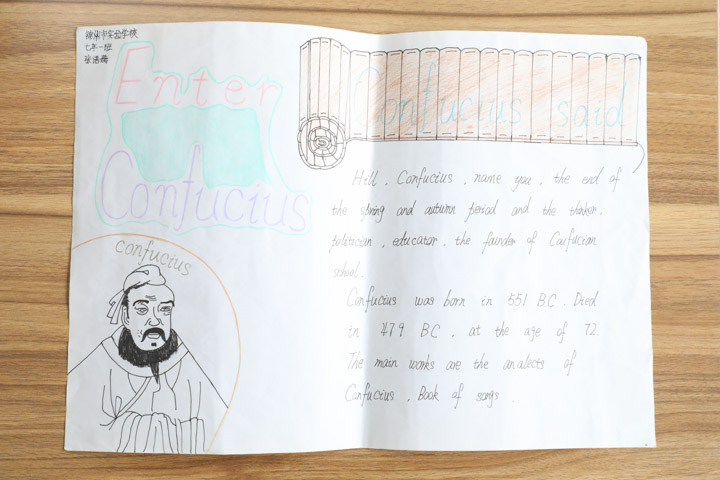 实验学校
七年一班
Enter
Confucius
confucius
Confucius said
Hill , Confucius , name you , the end of
the spring and autumn period and the thinker,
politician , educator , the founder of Confucian
school .
Confucius was born in 551 BC . Died
in 479 BC , at the age of 72
The main works are the analects of
Confucius , Book of songs .